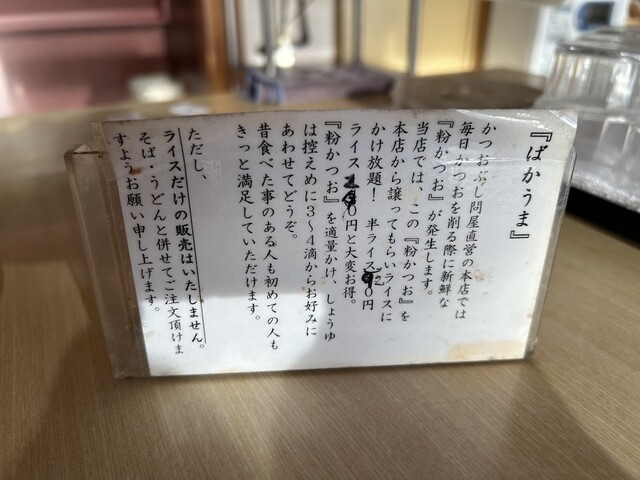 『ばかうま』
かつおぶし問屋直営の本店では
毎日かつおを削る際に新鮮な
『粉かつお』が発生します。
当店では、この『粉かつお』を
本店から譲ってもらいライスに
かけ放題！　半ライス 円
ライス 円と大変お得。
『粉かつお』を適量かけ、しょうゆ
は控えめに3～4滴からお好みに
あわせてどうぞ。
昔食べた事のある人も初めての人も
きっと満足していただけます。
ただし、
ライスだけの販売はいたしません。
そば・うどんと併せてご注文頂けま
すようお願い申し上げます。